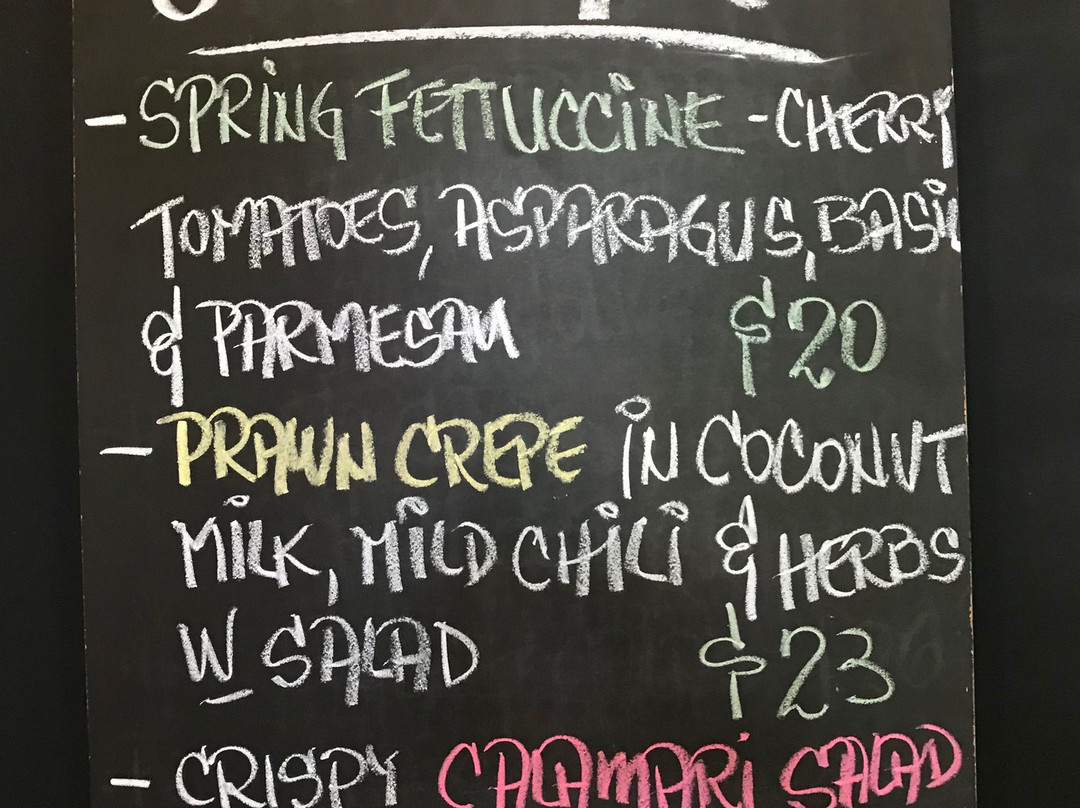 - SPRING FETTUCCINE - CHERRY
TOMATOES, ASPARAGUS, BASIL
& PARMESAN $20
- PRAWN CREPE IN COCONUT
MILK, MILD CHILI & HERBS
W SALAD $23
- CRISPY CALAMARI SALAD